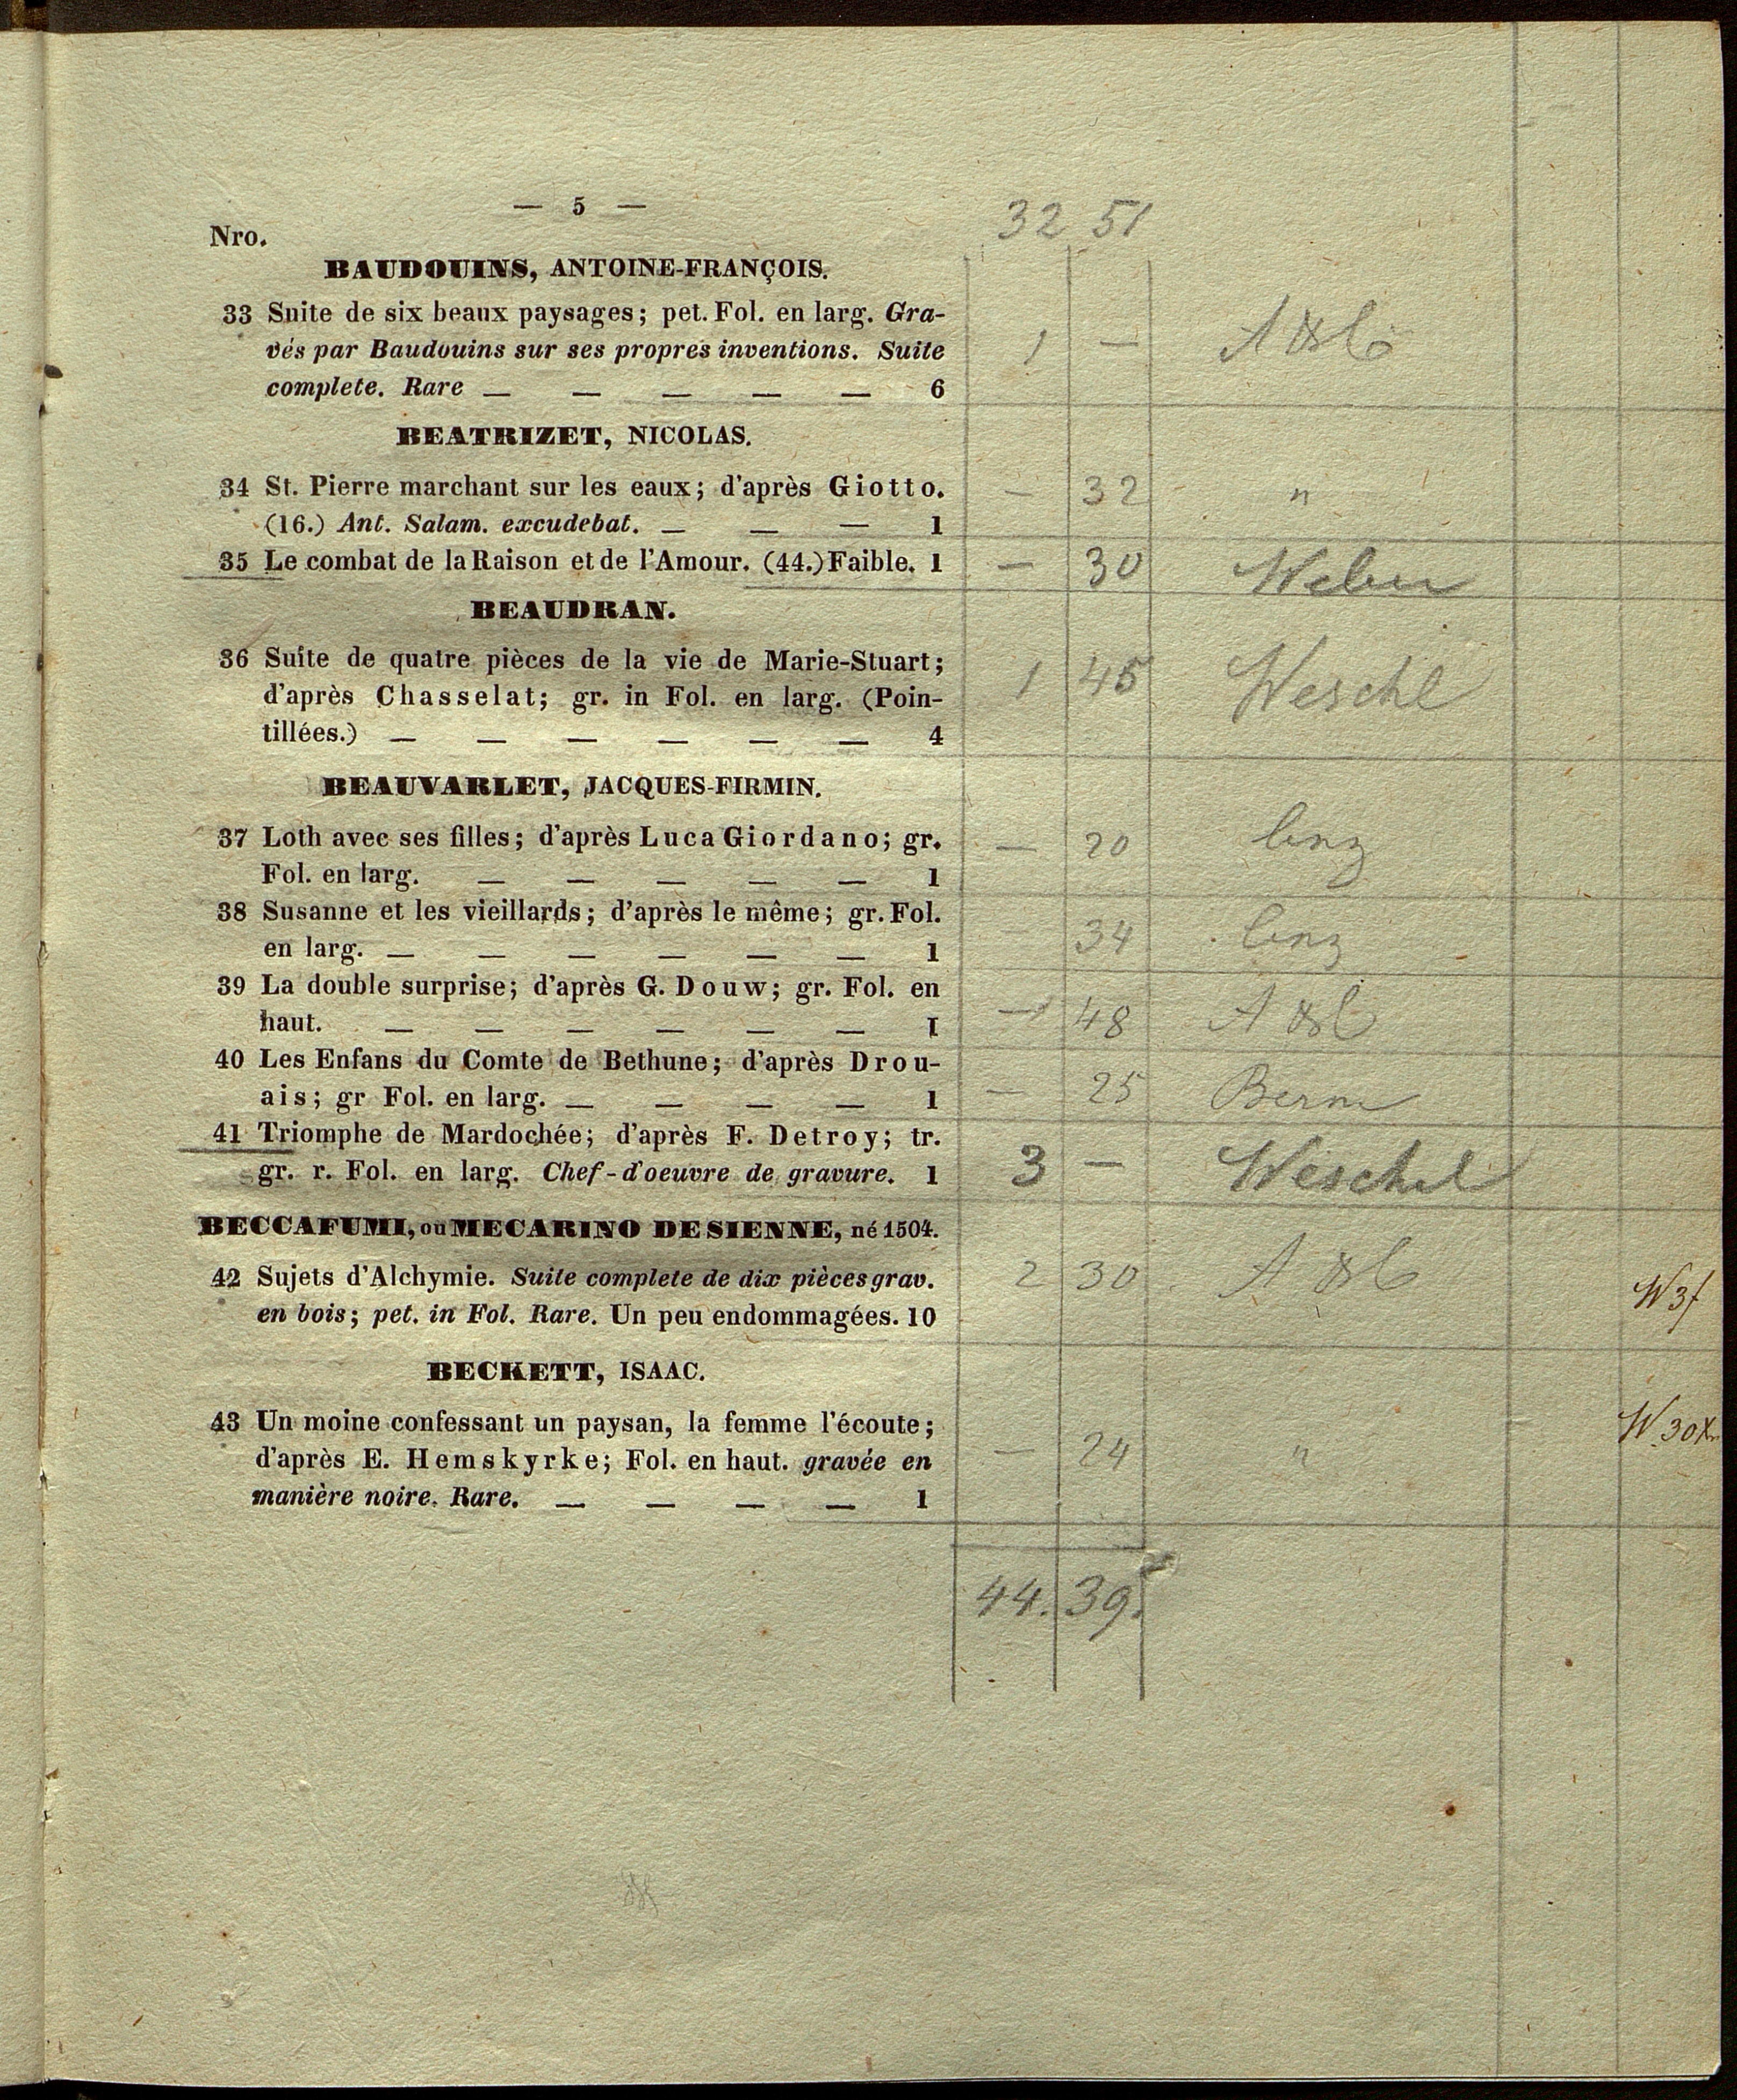 — 5 —
32 51
Nro.
BAUDOUINS, ANTOINE-FRANÇOIS.
33 Suite de six beaux paysages; pet. Fol. en larg. Gra-
vés par Baudouins sur ses propres inventions. Suite
1 —
complete. Rare — — — — — 6
BEATRIZET, NICOLAS.
34 St. Pierre marchant sur les eaux; d'après Giotto.
— 32 "
(16.) Ant. Salam. excudebat. — — — 1
35 Le combat de la Raison et de l'Amour. (44.) Faible. 1
— 30 Weber
BEAUDRAN.
36 Suite de quatre pièces de la vie de Marie-Stuart;
d'après Chasselat; gr. in Fol. en larg. (Poin-
1 45 Weschl
tillées.) — — — — — — 4
BEAUVARLET, JACQUES-FIRMIN.
37 Loth avec ses filles; d'après Luca Giordano; gr.
— 20
Fol. en larg. — — — — — 1
38 Susanne et les vieillards; d'après le même; gr. Fol.
— 34
en larg. — — — — — — 1
39 La double surprise; d'après G. Douw; gr. Fol. en
48
haut. — — — — — — 1
40 Les Enfans du Comte de Bethune; d'après Drou-
— 25
ais; gr Fol. en larg. — — — — 1
41 Triomphe de Mardochée; d'après F. Detroy; tr.
gr. r. Fol. en larg. Chef-d'oeuvre de gravure. 1
3 — Weschel
BECCAFUMI, ou MECARINO DE SIENNE, né 1504.
42 Sujets d'Alchymie. Suite complete de dix pièces grav.
2 30 W 3f
en bois; pet. in Fol. Rare. Un peu endommagées. 10
BECKETT, ISAAC.
43 Un moine confessant un paysan, la femme l'écoute;
W. 30x
d'après E. Hemskyrke; Fol. en haut. gravée en
— 24 "
manière noire. Rare. — — — — 1
44. 39.